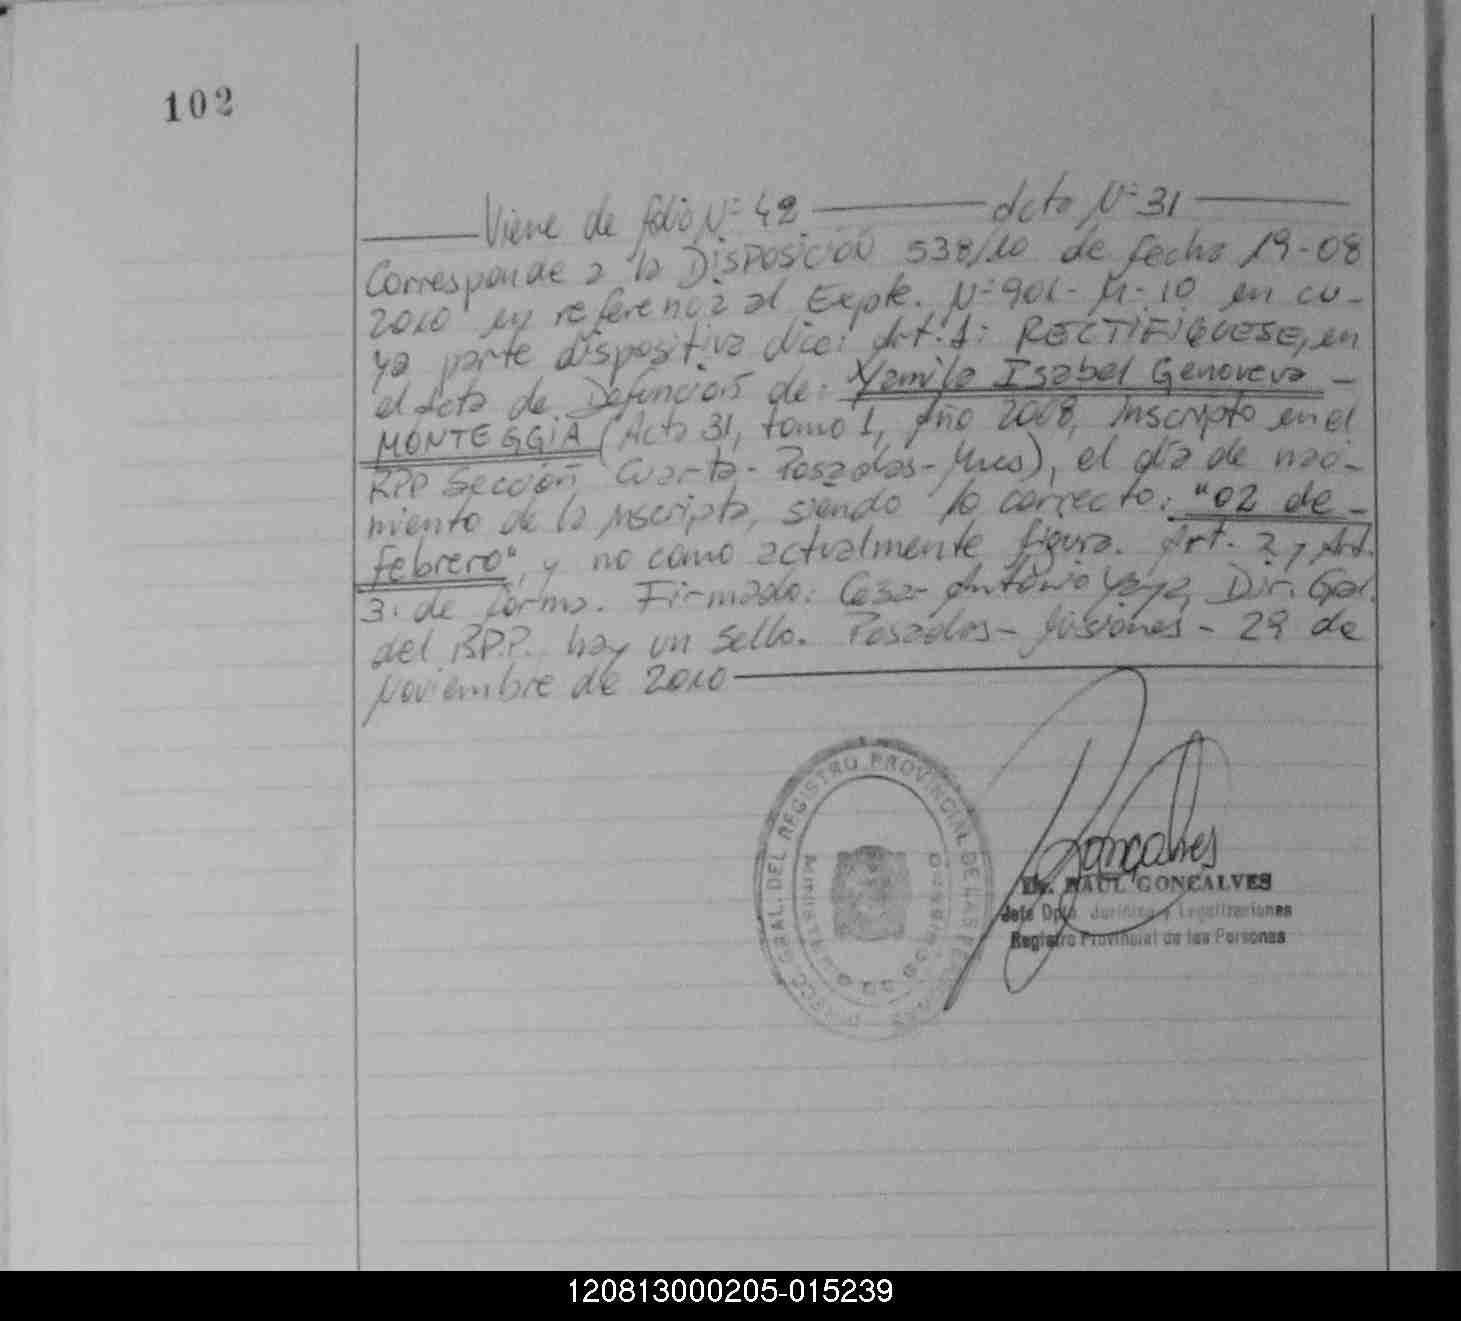 102
Viene de folio Nº 42 acta Nº 31
Corresponde a la Disposición 538/10 de fecha 19-08
2010 en referencia al Expte. Nº 901-M-10 en cu-
ya parte dispositiva dice: Art. 1: RECTIFIQUESE, en
el Acta de Defunción de: Yamila Isabel Genoveva -
MONTEGGIA (Acta 31, tomo 1, Año 2008, inscripta en el
RPP Sección Cuarta - Posadas - Mnes), el día de naci-
miento de la inscripta, siendo lo correcto: "02 de -
febrero", y no como actualmente figura. Art. 2 y Art.
3. de forma. Firmado: Cesar Antonio Yaya, Dir. Gral.
del RPP. hay un sello. Posadas - Misiones - 29 de
Noviembre de 2010
DIRECC. GRAL. DEL REGISTRO PROVINCIAL DE LAS PERSONAS
MINISTERIO DE GOBIERNO
Gonçalves
Dr. RAUL GONCALVES
Jefe Dpto. Jurídico y Legalizaciones
Registro Provincial de las Personas
120813000205-015239